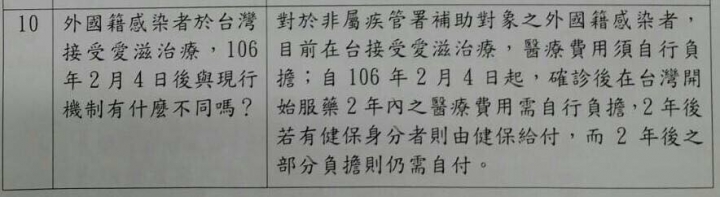 10
外國籍感染者於台灣
接受愛滋治療，106
年2月4日後與現行
機制有什麼不同嗎？
對於非屬疾管署補助對象之外國籍感染者，
目前在台接受愛滋治療，醫療費用須自行負
擔；自 106 年 2 月 4 日起，確診後在台灣開
始服藥 2 年內之醫療費用需自行負擔，2 年後
若有健保身分者則由健保給付，而 2 年後之
部分負擔則仍需自付。